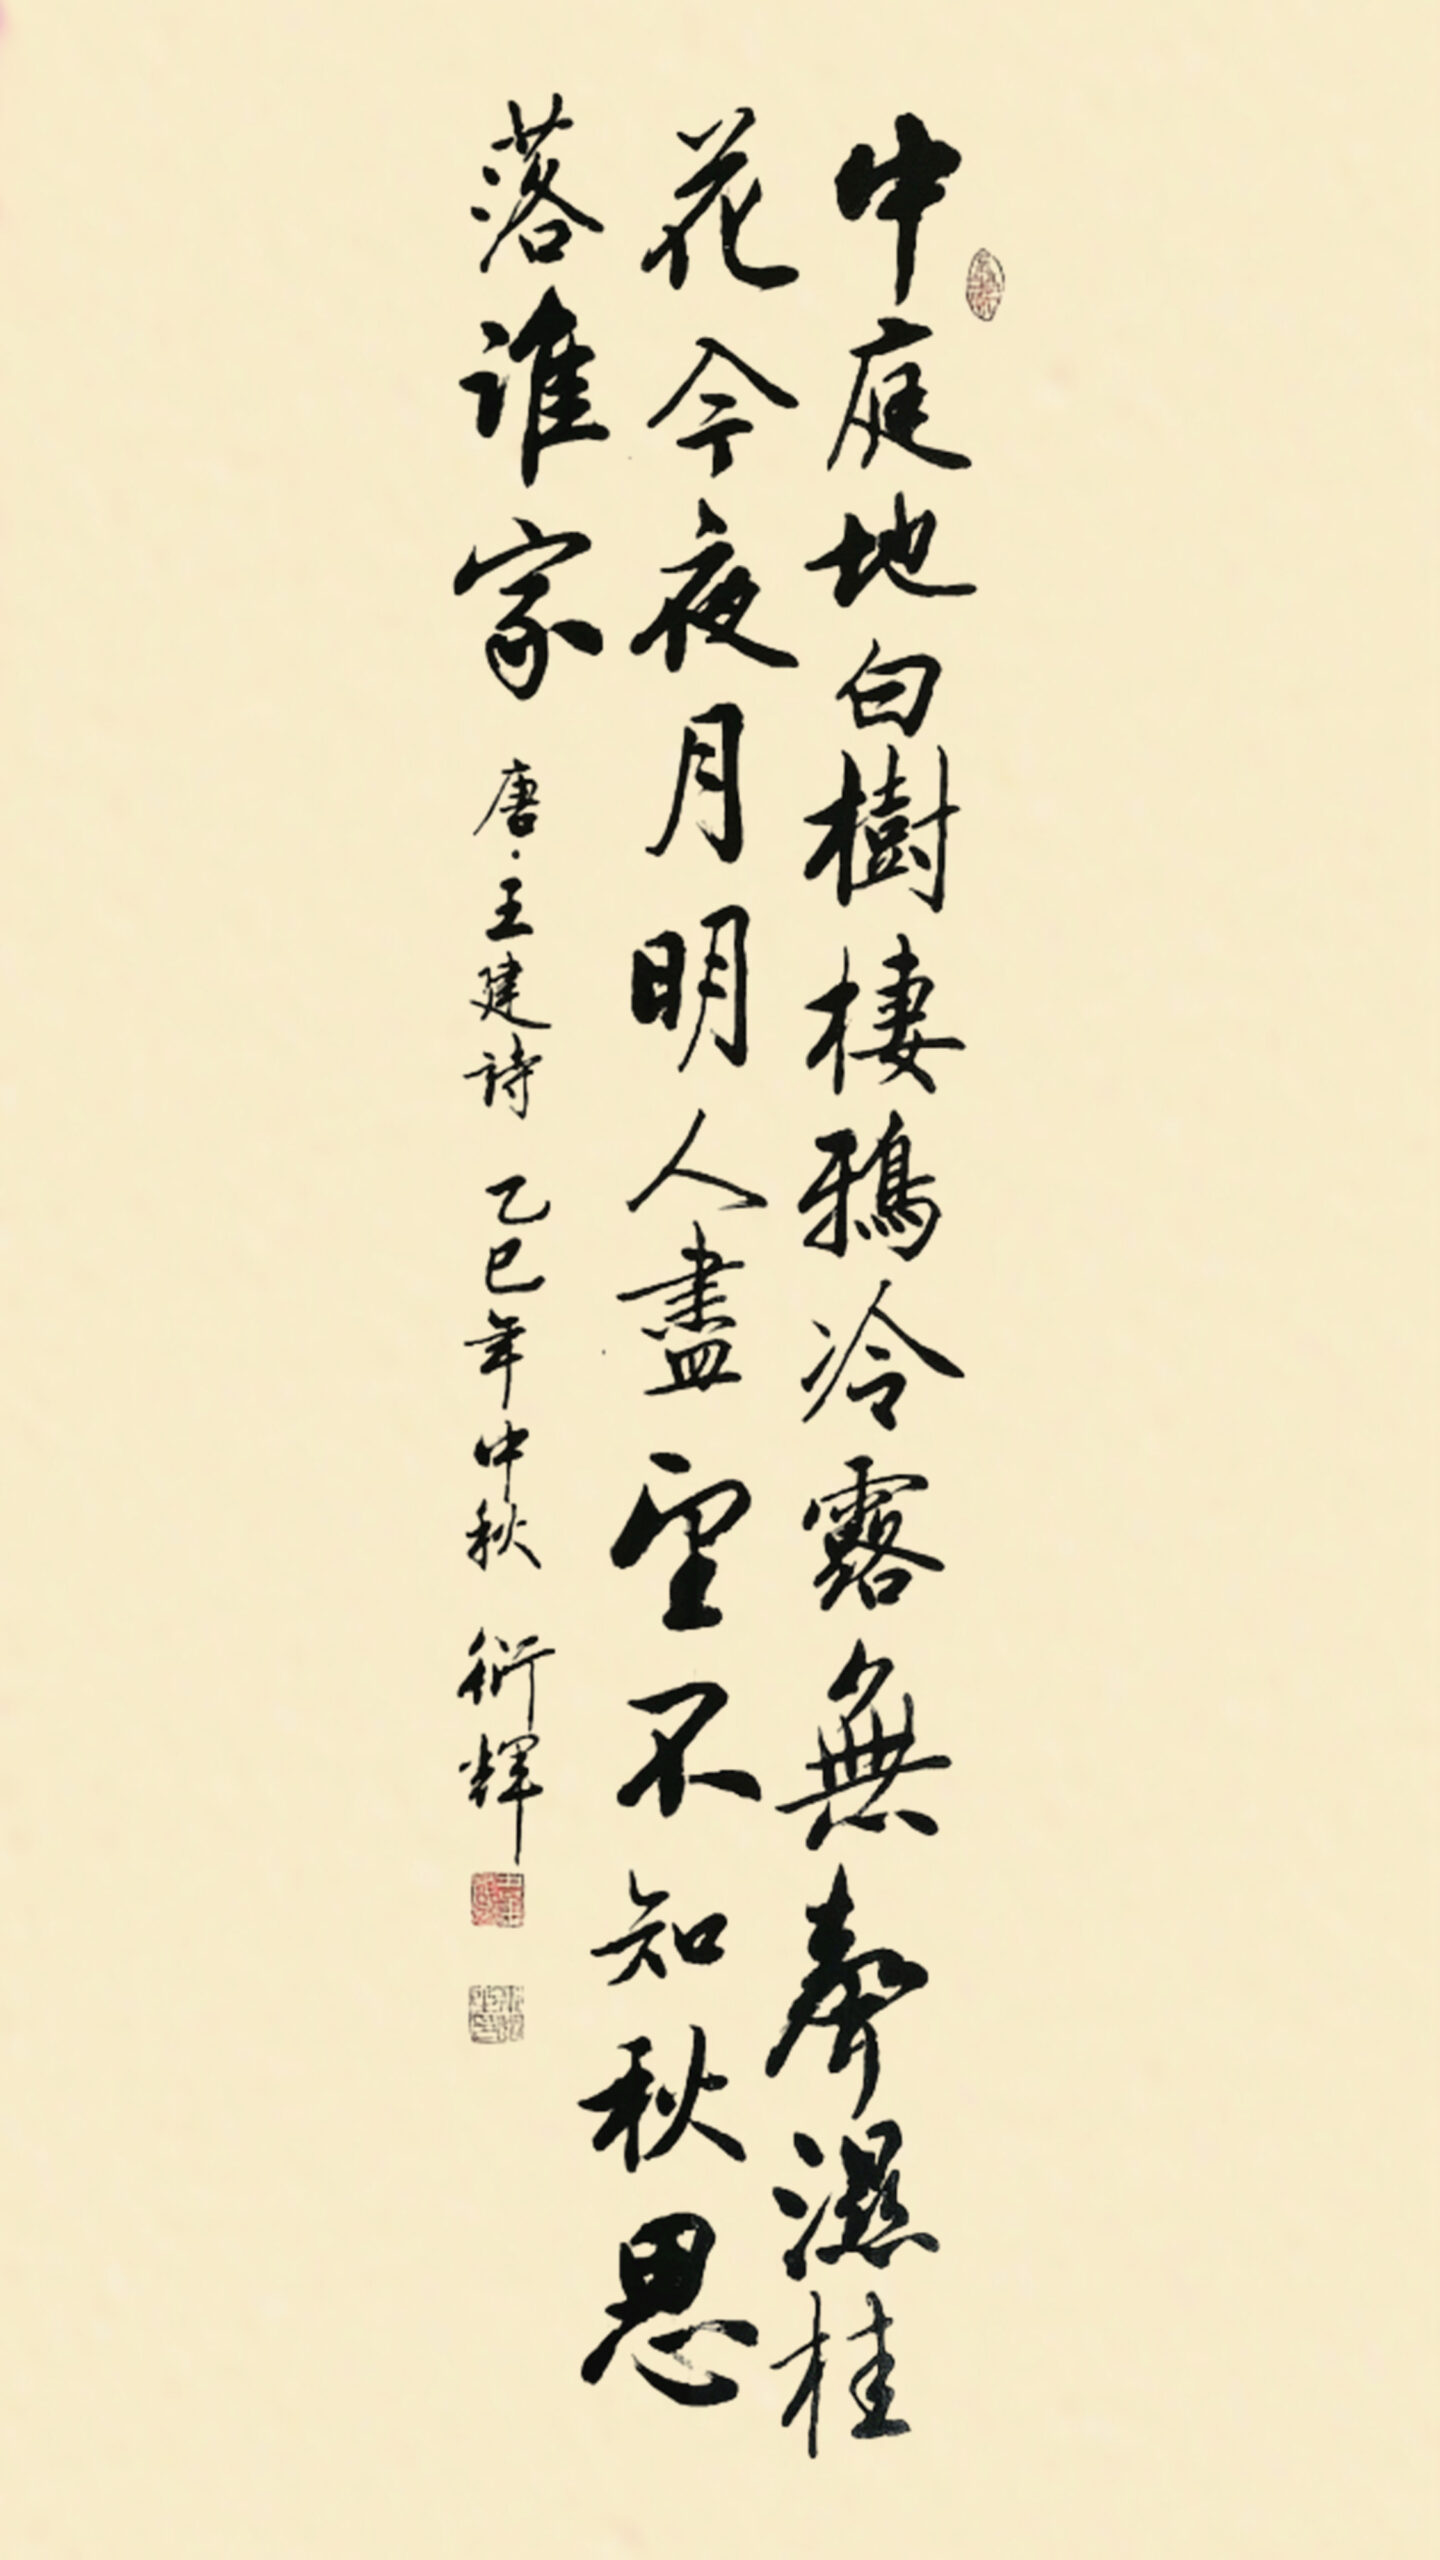 中庭地白樹棲鴉冷露無聲濕桂
花今夜月明人盡望不知秋思
落誰家
唐·王建詩 乙巳年中秋 衍輝